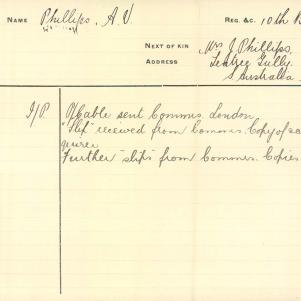 NAME Phillips, A. V. REG. &C. 10th B
NEXT OF KIN Mrs J. Phillips,
ADDRESS Teatree Gully.
S. Australia
I/P. O/Cable sent Commrs. London
"Slip" received from Commrs. Copy of
Further "slips" from Commrs. Copies